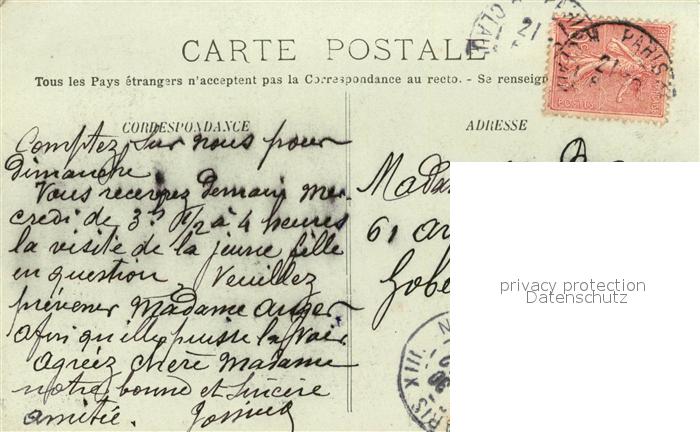 CARTE POSTALE
Tous les Pays étrangers n'acceptent pas la Correspondance au recto. - Se renseign
CORRESPONDANCE
Comptez sur nous pour
Dimanche
Vous recevrez demain mer-
credi de 3h 1/2 à 4 heures
la visite de la jeune fille
en question Veuillez
prévenir Madame Anger
afin qu'elle puisse la voir
Agréez chère Madame
notre bonne et sincère
amitié.
ADRESSE
Mada
61 a
Gobe
privacy protection
Datenschutz
PARIS
21
POSTES
PARIS XIII